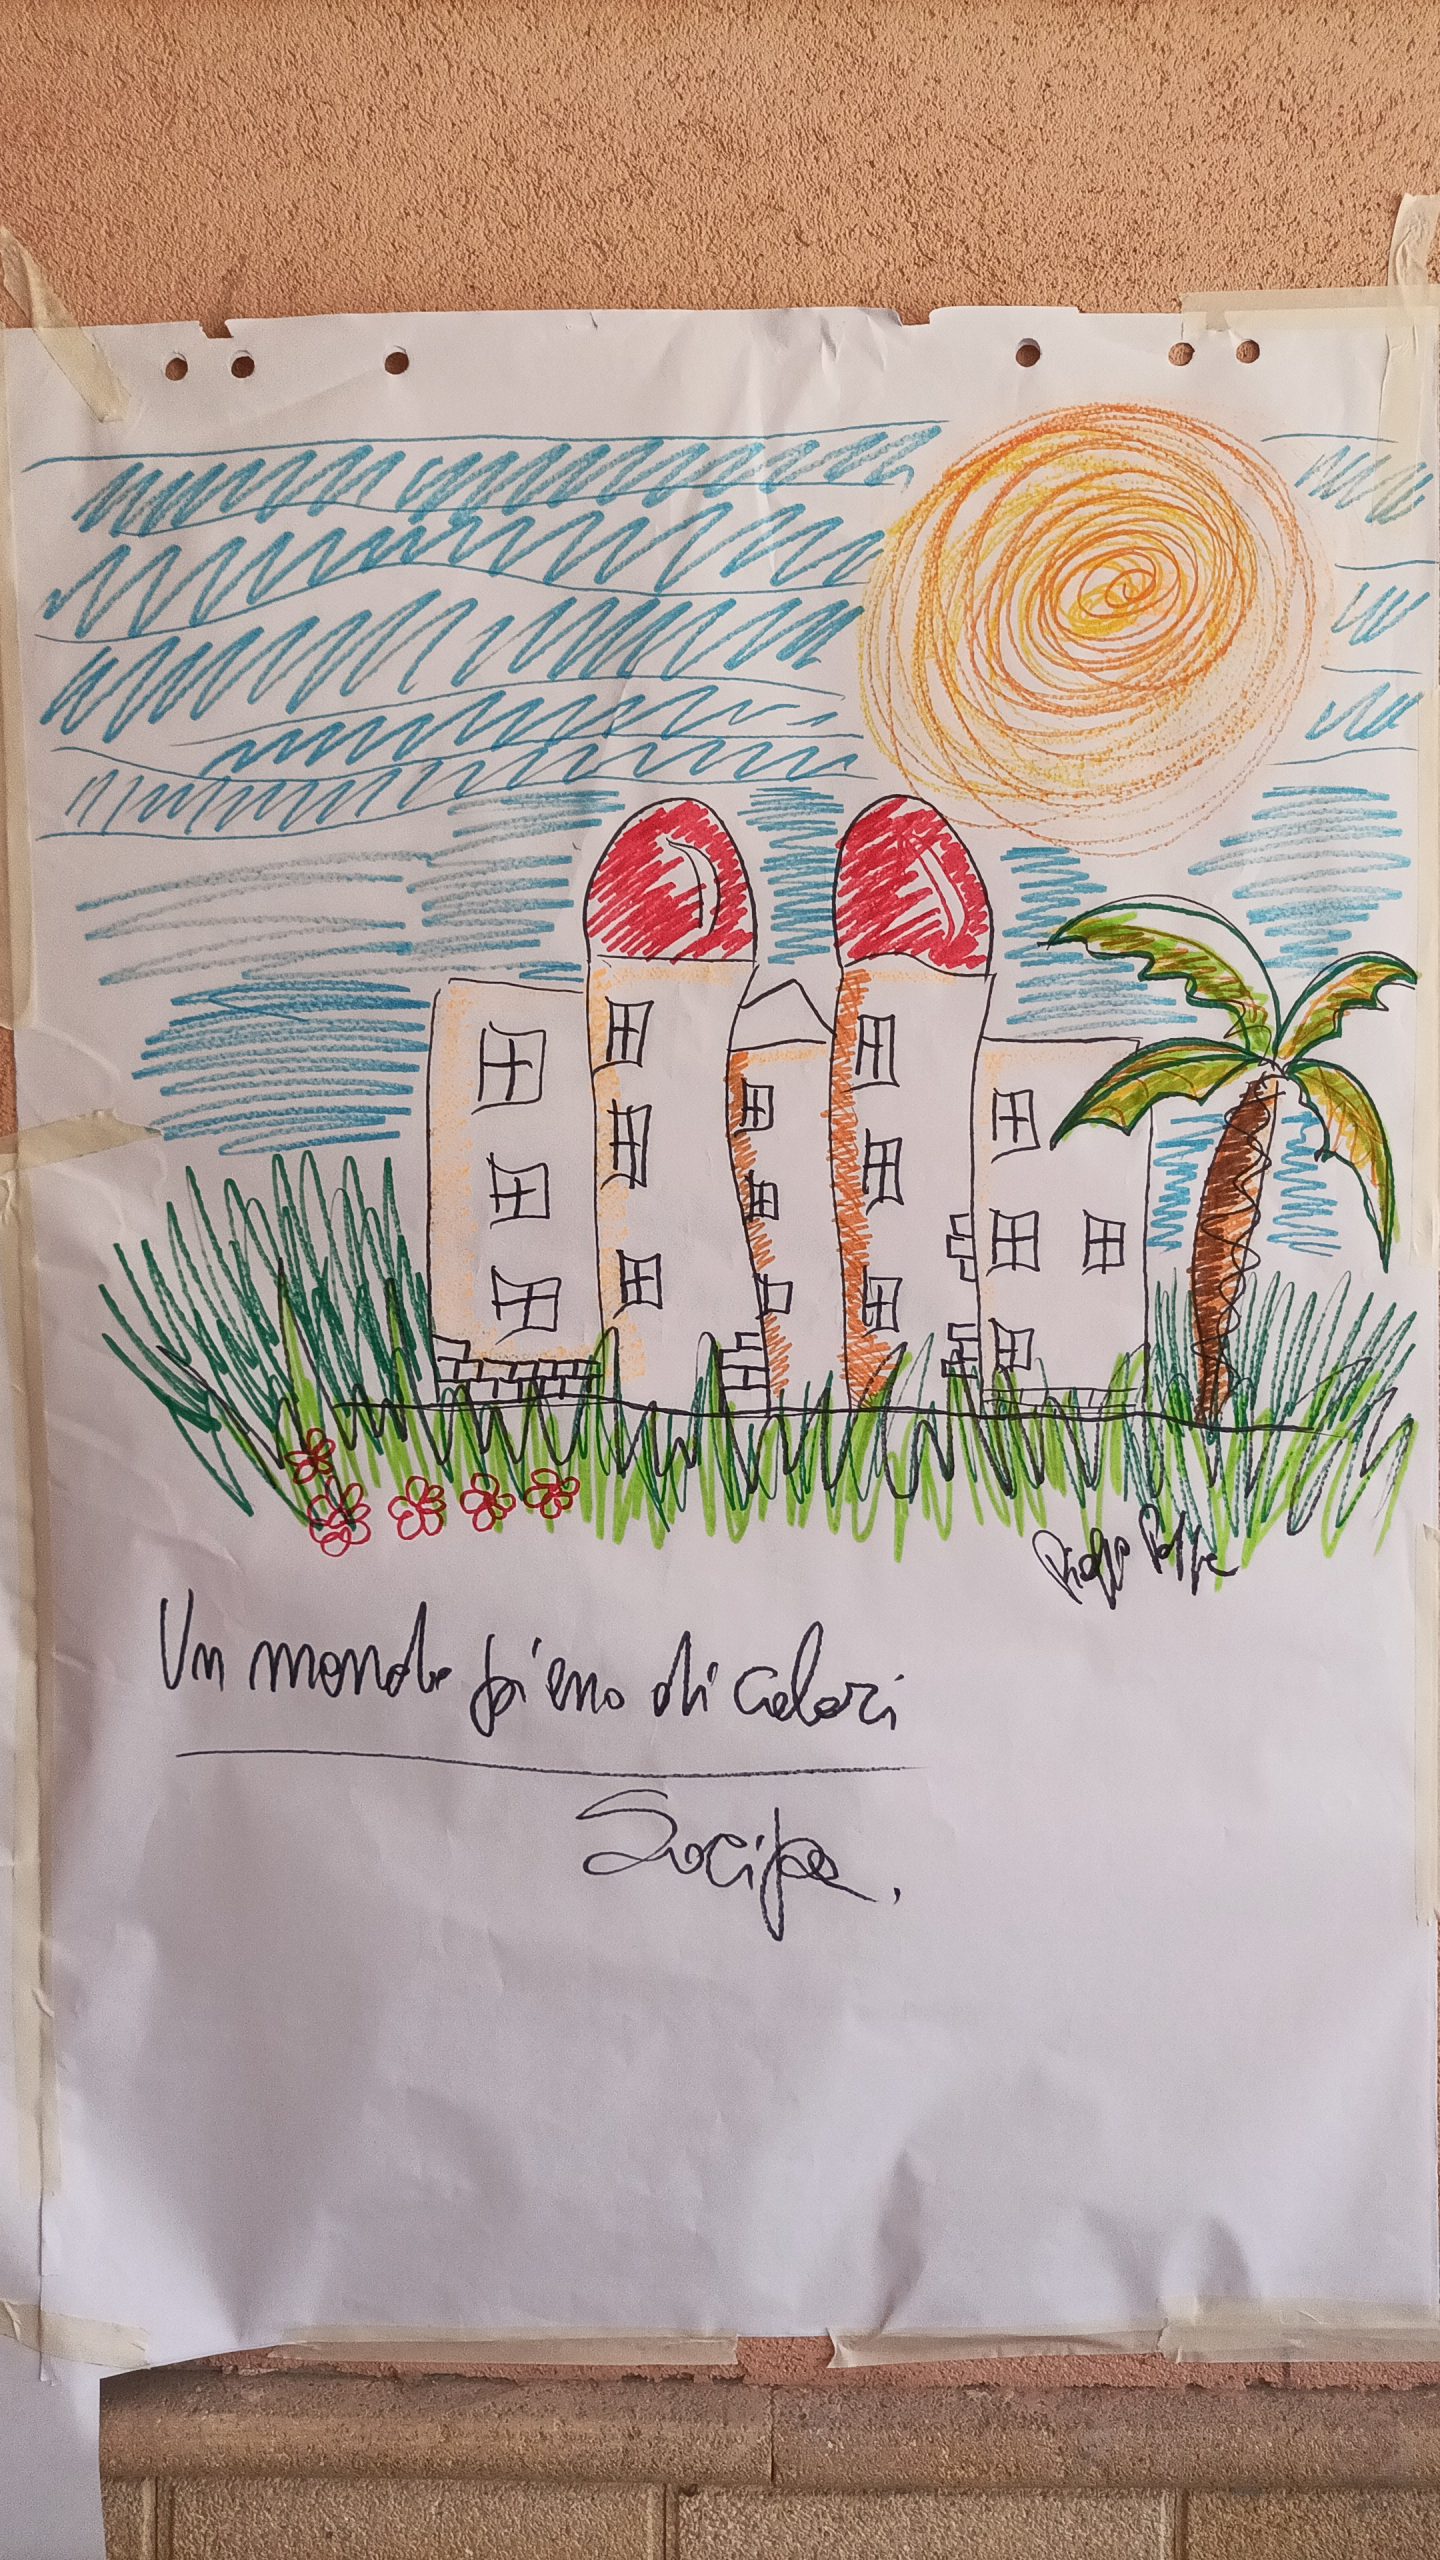 Un mondo pieno di colori
Socipa.